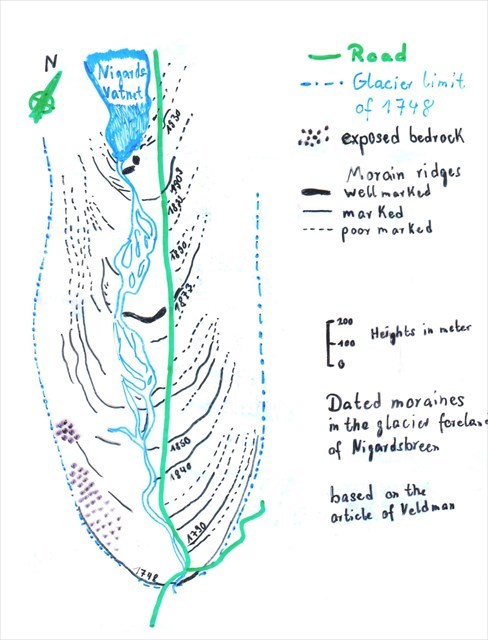 N
Nigards
Vatnet
1930
1903
1890
1873
1850
1840
1790
1748
Road
Glacier limit
of 1748
exposed bedrock
Morain ridges
well marked
marked
poor marked
200
100
0
Heights in meter
Dated moraines
in the glacier foreland
of Nigardsbreen
based on the
article of Veldman